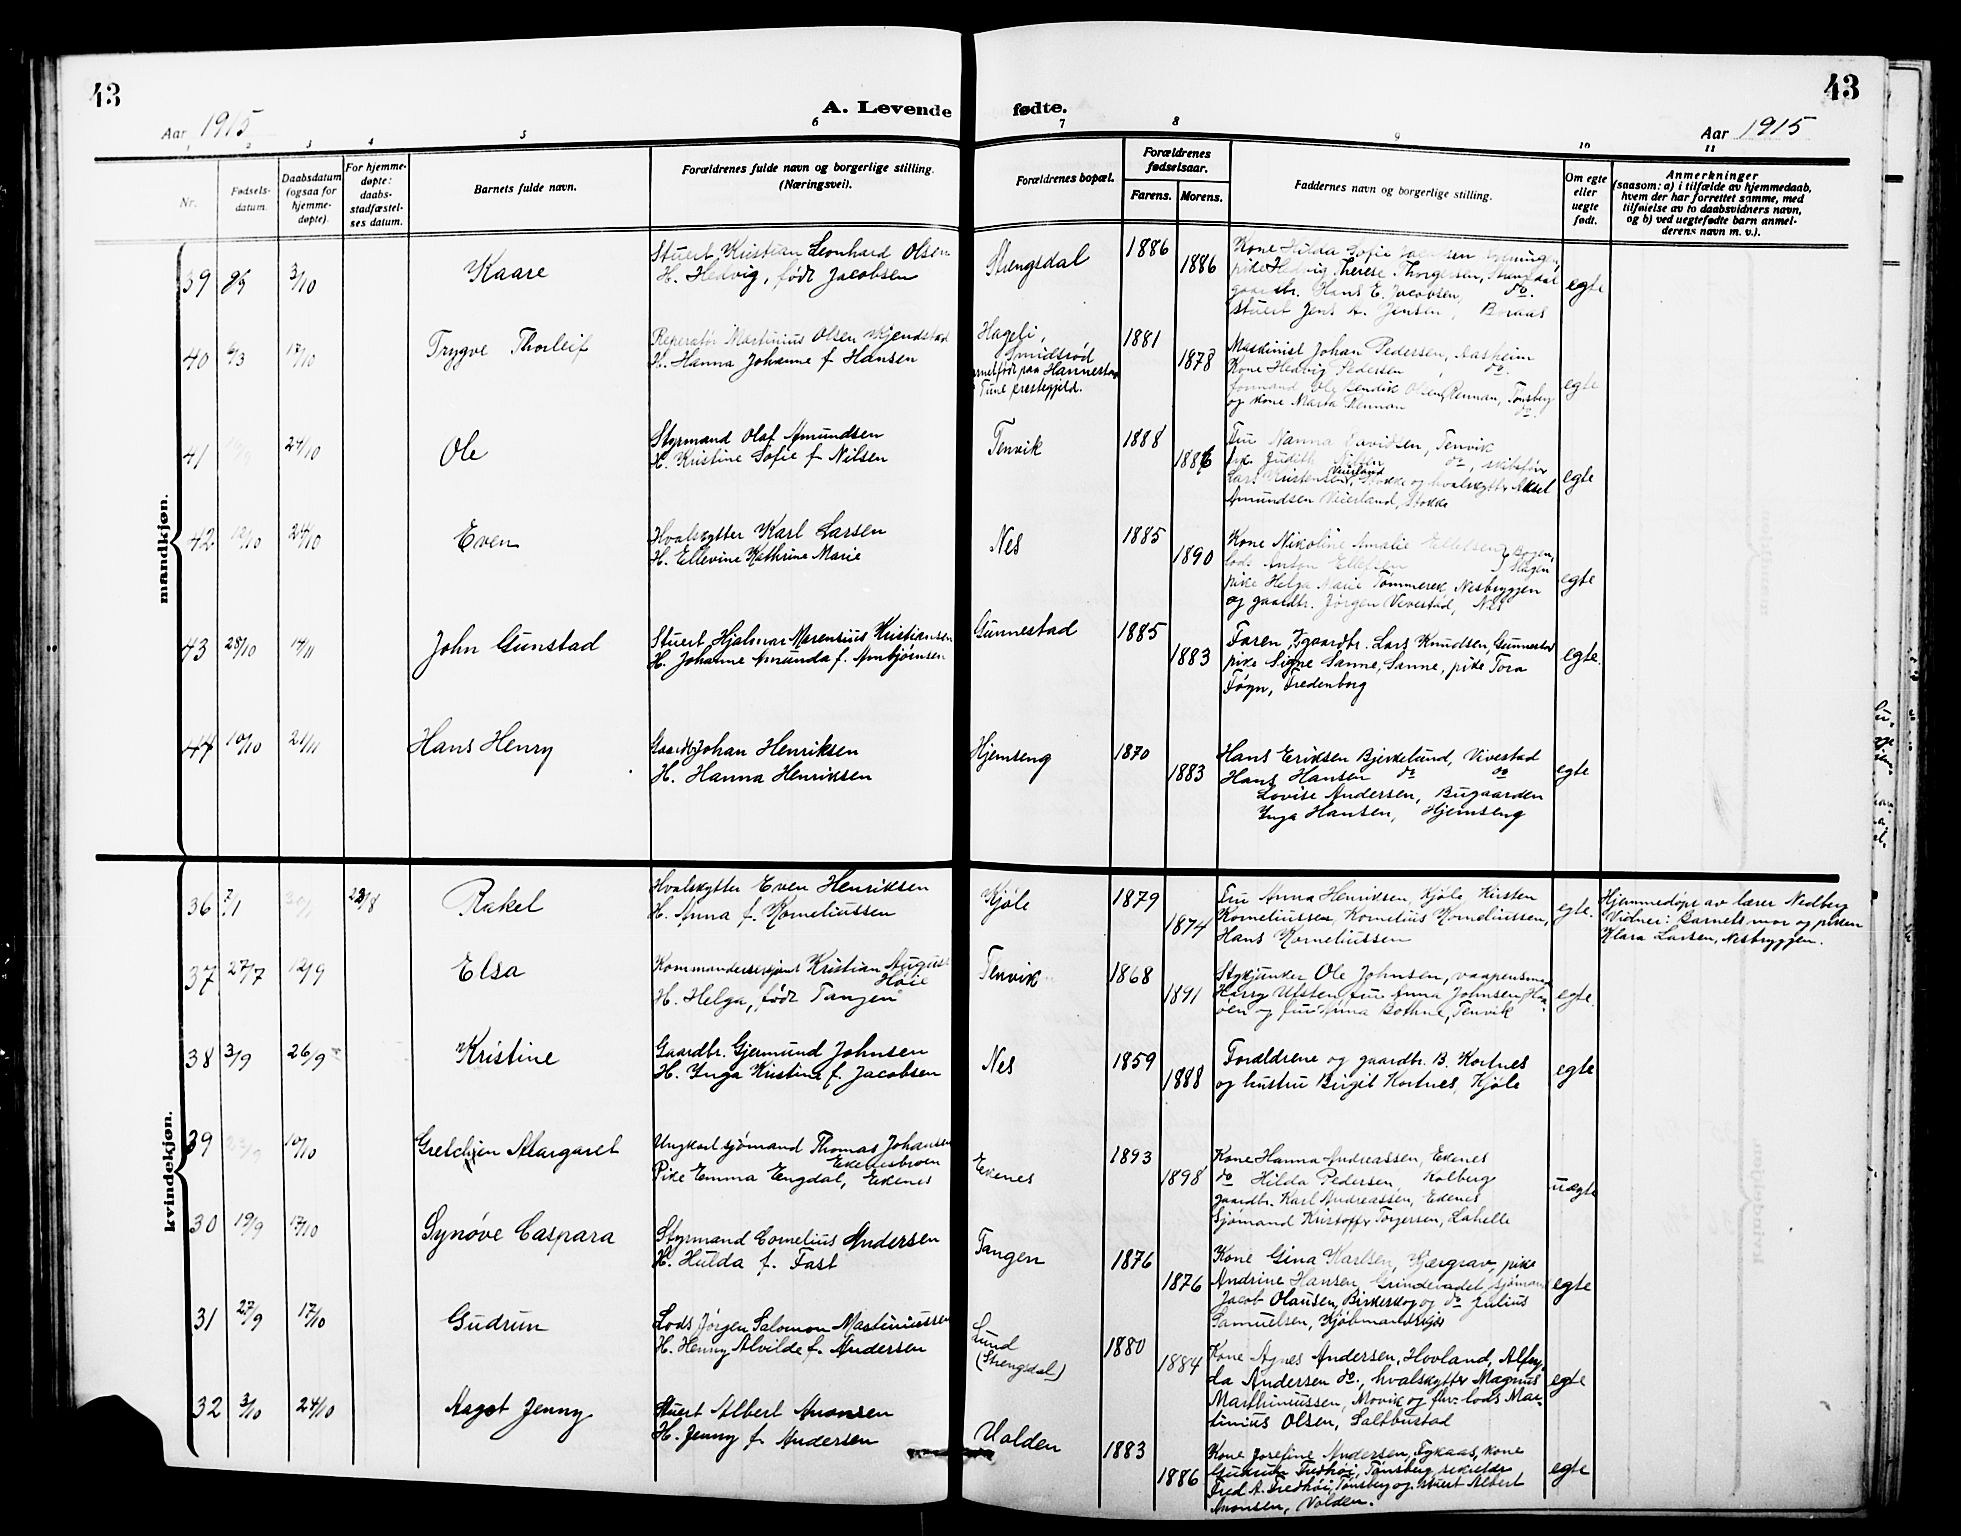 43
43
A. Levende fødte.
Aar 1915
Aar 1915
1 2 3 4 5 6 7 8 9 10 11
Nr.
Fødsels-
datum.
Daabsdatum
(ogsaa for
hjemme-
døpte).
For hjemme-
døpte:
daabs-
stadfæstel-
ses datum.
Barnets fulde navn.
Forældrenes fulde navn og borgerlige stilling.
(Næringsvei).
Forældrenes bopæl.
Forældrenes
fødselsaar.
Farens. Morens.
Faddernes navn og borgerlige stilling.
Om egte
eller
uegte
født.
Anmerkninger
(saasom: a) i tilfælde av hjemmedaab,
hvem der har forrettet samme, med
tilføielse av to daabsvidners navn,
og b) ved uegtefødte barn anmel-
derens navn m. v.).
mandkjøn.
39 3/10 Kaare
Stuert Kristian Leonhard Olsen
H. Hedvig, født Jacobsen
Strengsdal 1886 1886
Kone Hilda Sofie
pike Hedvig Therese Thorgersen, Strengsdal
gaardbr. Hans E. Jacobsen, do.
Stuert Jens A. Jensen, Boraas
egte
40 17/10 Trygve Thorleif
Reperatør Martinius Olsen Kjendstad
H. Hanna Johanne f. Hansen
Hageli,
Smidsrød
født paa Hannestad
Tune prestegjeld.
1881 1878
Maskinist Johan Pedersen, Aasheim
Kone Hedvig Pedersen do.
formand Ole Bendik Olsen Rennan, Tønsberg
og kone Marta Rennan do.
egte
41 24/10 Ole
Styrmand Olaf Amundsen
H. Kristine Sofie f. Nilsen
Tenvik 1888 1886
Fru Nanna Davidsen, Tenvik
frk. Judith Nilsen do, skibsfør
Lars Kristensen, Veierland, Stokke og hvalskytter Aksel
Amundsen Veierland, Stokke
egte
42 12/10 24/10 Even
Hvalskytter Karl Larsen
H. Ellevine Kathrine Marie
Nes 1885 1890
Kone Nikoline Amalie Ellefsen, Bogen,
lods Anton Ellefsen Slagen
pike Helga Marie Tømmerek, Nesbryggen
og gaardbr. Jørgen Vivestad, Nes
egte
43 28/10 14/11 John Gunstad
Stuert Hjalmar Marensius Kristiansen
H. Johanne Amunda f. Ambjørnsen
Gunnestad 1885 1883
Faren, gaardbr. Lars Knudsen, Gunnestad
pike Signe Sanne, Sanne, pike Tora
Føyn, Fredenborg
egte.
44 10/10 21/11 Hans Henry
Gaardbr. Johan Henriksen
H. Hanna Henriksen
Hjemseng 1870 1883
Hans Eriksen Bjerkelund, Vivestad
Hans Hansen do do
Lovise Andersen, Bugaarden
Inga Hansen, Hjemseng
egte
kvindekjøn.
36 7/1 30/1 22/8 Rakel
Hvalskytter Even Henriksen
H. Anna f. Korneliussen
Kjøle 1879 1874
Fru Anna Henriksen, Kjøle, Kirsten
Korneliussen, Kornelius Korneliussen,
Hans Korneliussen
egte.
Hjemmedøpt av lærer Nedberg
Vidner: Barnets mor og piken
Klara Larsen, Nesbryggen.
37 27/7 12/9 Elsa
Kommandersersjant Kristian August
Høie
H. Helga, født Tangen
Tenvik 1868 1891
Stykjunker Ole Johnsen, vaapensmed
Harry Ufsten, fru Anna Johnsen,
øen og fru Anna Bothne, Tenvik
egte.
38 3/9 26/9 Kristine
Gaardbr. Gjermund Johnsen
H. Inga Kristine f. Jacobsen
Nes 1859 1888
Forældrene og gaardbr. B. Kortnes
og hustru Birgit Kortnes, Kjøle
egte
39 23/9 10/10 Gretchen Margaret
Ungkarl sjømand Thomas Johansen
Ekenesbroen
Pike Emma Engdal, Ekenes
Ekenes 1893 1898
Kone Hanna Andreassen, Ekenes
do Hilda Pedersen, Kolberg
gaardbr. Karl Andreassen, Ekenes
Sjømand Kristoffer Torgersen, Lahelle
uægte
30 19/9 17/10 Synøve Caspara
Styrmand Cornelius Andersen
H. Hulda f. Fast
Tangen 1876 1876
Kone Gina Karlsen, Kjærgrav, pike
Andrine Hansen, Grindevadet, sjømand
Jacob Olausen, Birkeskog og do Julius
Samuelsen, Kjøbmandskjær
egte
31 27/9 17/10 Gudrun
Lods Jørgen Salomon Martiniussen
H. Henny Alvilde f. Andersen
Lund
(Strengsdal)
1880 1884
Kone Agnes Andersen, Hovland, Alfry-
da Andersen do., hvalskytter Magnus
Marthiniussen, Movik og fhv. lods Mar-
tinius Olsen, Saltbustad
egte
32 3/10 24/10 Aagot Jenny
Stuert Albert Aronsen
H. Jenny f. Andersen
Volden 1883 1886
Kone Josefine Andersen, Fykaas, kone
Gudrun Fredhøi, Tønsberg, sekretær
Fred A. Fredhøi, Tønsberg og stuert Albert
Aronsen, Volden.
egte